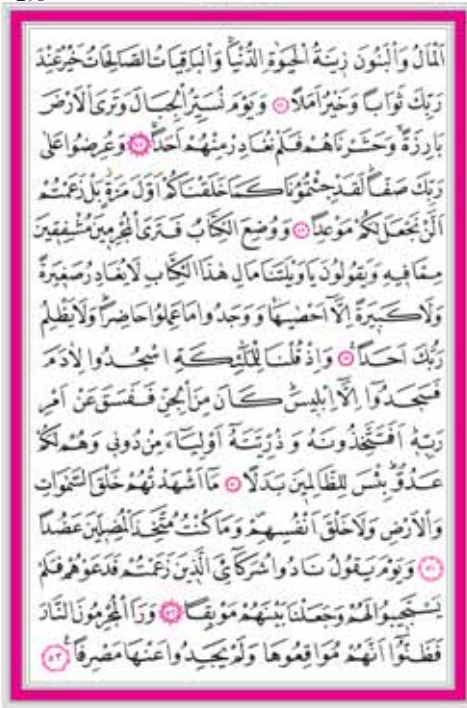 اَلْمَالُ وَالْبَنُونَ زِينَةُ الْحَيٰوةِ الدُّنْيَاۚ وَالْبَاقِيَاتُ الصَّالِحَاتُ خَيْرٌ عِنْدَ
رَبِّكَ ثَوَاباً وَخَيْرٌ اَمَلاً ﴿٤٦﴾ وَيَوْمَ نُسَيِّرُ الْجِبَالَ وَتَرَى الْاَرْضَ
بَارِزَةًۙ وَحَشَرْنَاهُمْ فَلَمْ نُغَادِرْ مِنْهُمْ اَحَداًۚ ﴿٤٧﴾ وَعُرِضُوا عَلٰى
رَبِّكَ صَفاًّۜ لَقَدْ جِئْتُمُونَا كَمَا خَلَقْنَاكُمْ اَوَّلَ مَرَّةٍۘ بَلْ زَعَمْتُمْ
اَلَّنْ نَجْعَلَ لَكُمْ مَوْعِداً ﴿٤٨﴾ وَوُضِعَ الْكِتَابُ فَتَرَى الْمُجْرِمِينَ مُشْفِقِينَ
مِمَّا فِيهِ وَيَقُولُونَ يَاوَيْلَتَنَا مَالِ هٰذَا الْكِتَابِ لَايُغَادِرُ صَغِيرَةً
وَلَا كَبِيرَةً اِلَّٓا اَحْصٰيهَاۚ وَوَجَدُوا مَا عَمِلُوا حَاضِراًۜ وَلَا يَظْلِمُ
رَبُّكَ اَحَداً۟ ﴿٤٩﴾ وَاِذْ قُلْنَا لِلْمَلٰٓئِكَةِ اسْجُدُوا لِاٰدَمَ
فَسَجَدُٓوا اِلَّٓا اِبْلِيسَۜ كَانَ مِنَ الْجِنِّ فَفَسَقَ عَنْ اَمْرِ
رَبِّهۜ اَفَتَتَّخِذُونَهُ وَذُرِّيَّتَهُٓ اَوْلِيَٓاءَ مِنْ دُونِي وَهُمْ لَكُمْ
عَدُوٌّۜ بِئْسَ لِلظَّالِمِينَ بَدَلاً ﴿٥٠﴾ مَٓا اَشْهَدْتُهُمْ خَلْقَ السَّمٰوَاتِ
وَالْاَرْضِ وَلَا خَلْقَ اَنْفُسِهِمْۖ وَمَا كُنْتُ مُتَّخِذَ الْمُضِلِّينَ عَضُداً
﴿٥١﴾ وَيَوْمَ يَقُولُ نَادُوا شُرَكَٓاءِيَ الَّذِينَ زَعَمْتُمْ فَدَعَوْهُمْ فَلَمْ
يَسْتَجِيبُوا لَهُمْ وَجَعَلْنَا بَيْنَهُمْ مَوْبِقاً ﴿٥٢﴾ وَرَاَ الْمُجْرِمُونَ النَّارَ
فَظَنُّٓوا اَنَّهُمْ مُوَاقِعُوهَا وَلَمْ يَجِدُوا عَنْهَا مَصْرِفاً۟ ﴿٥٣﴾